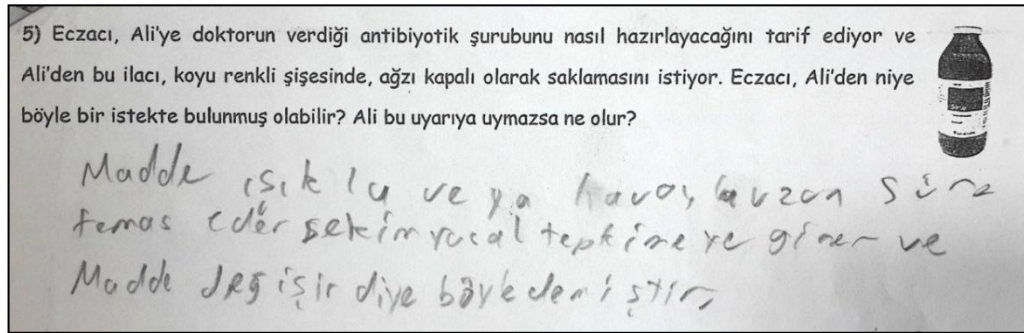 5) Eczacı, Ali'ye doktorun verdiği antibiyotik şurubunu nasıl hazırlayacağını tarif ediyor ve
Ali'den bu ilacı, koyu renkli şişesinde, ağzı kapalı olarak saklamasını istiyor. Eczacı, Ali'den niye
böyle bir istekte bulunmuş olabilir? Ali bu uyarıya uymazsa ne olur?
Madde ışıkla veya havayla uzon süre
temas ederse kimyasal tepkimeye girer ve
Madde değişir diye böyle demiştir,